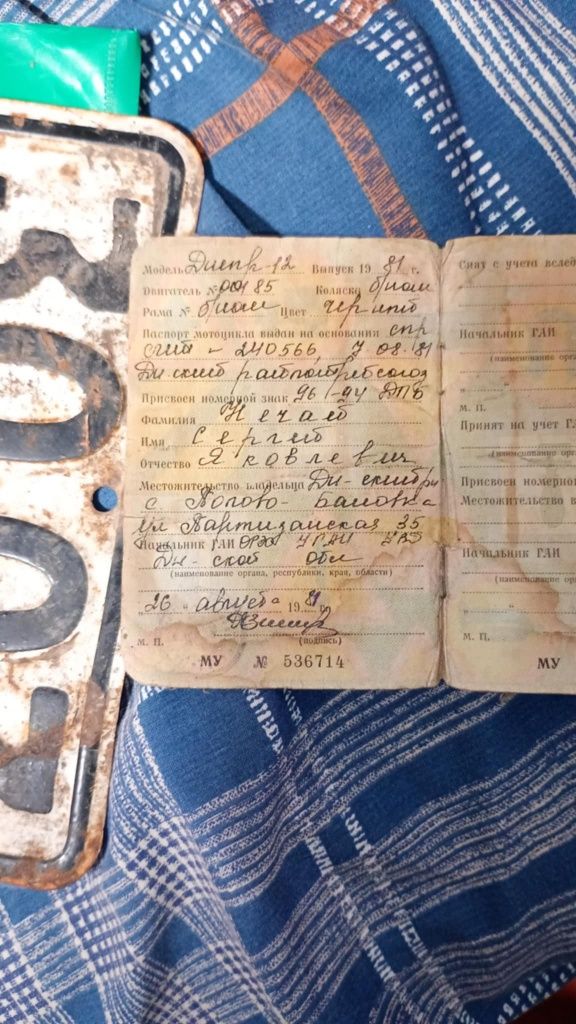 Модель Днепр-12 Выпуск 19 81 г.
Двигатель № 00185 Коляска б/ном
Рама № б/ном Цвет черный
Паспорт мотоцикла выдан на основании спр
счет - 240566, 7 08.81
Дн-ский райпотребсоюз
Присвоен номерной знак 96 1-94 ДПБ
Фамилия Нечай
Имя Сергей
Отчество Яковлевич
Местожительство владельца Дн-ский р-н
с Попово-Баловка
ул Партизанская 35
Начальник ГАИ УГАИ УВД
Дн-ской обл
(наименование органа, республики, края, области)
"26" августа 1981 г.
М. П. (подпись)
МУ № 536714
Снят с учета вслед
Начальник ГАИ
(наименование орга
М. П.
Принят на учет Г
(наименование орган
Присвоен номерно
Местожительство в
Начальник ГАИ
(наименование орга
М. П.
МУ